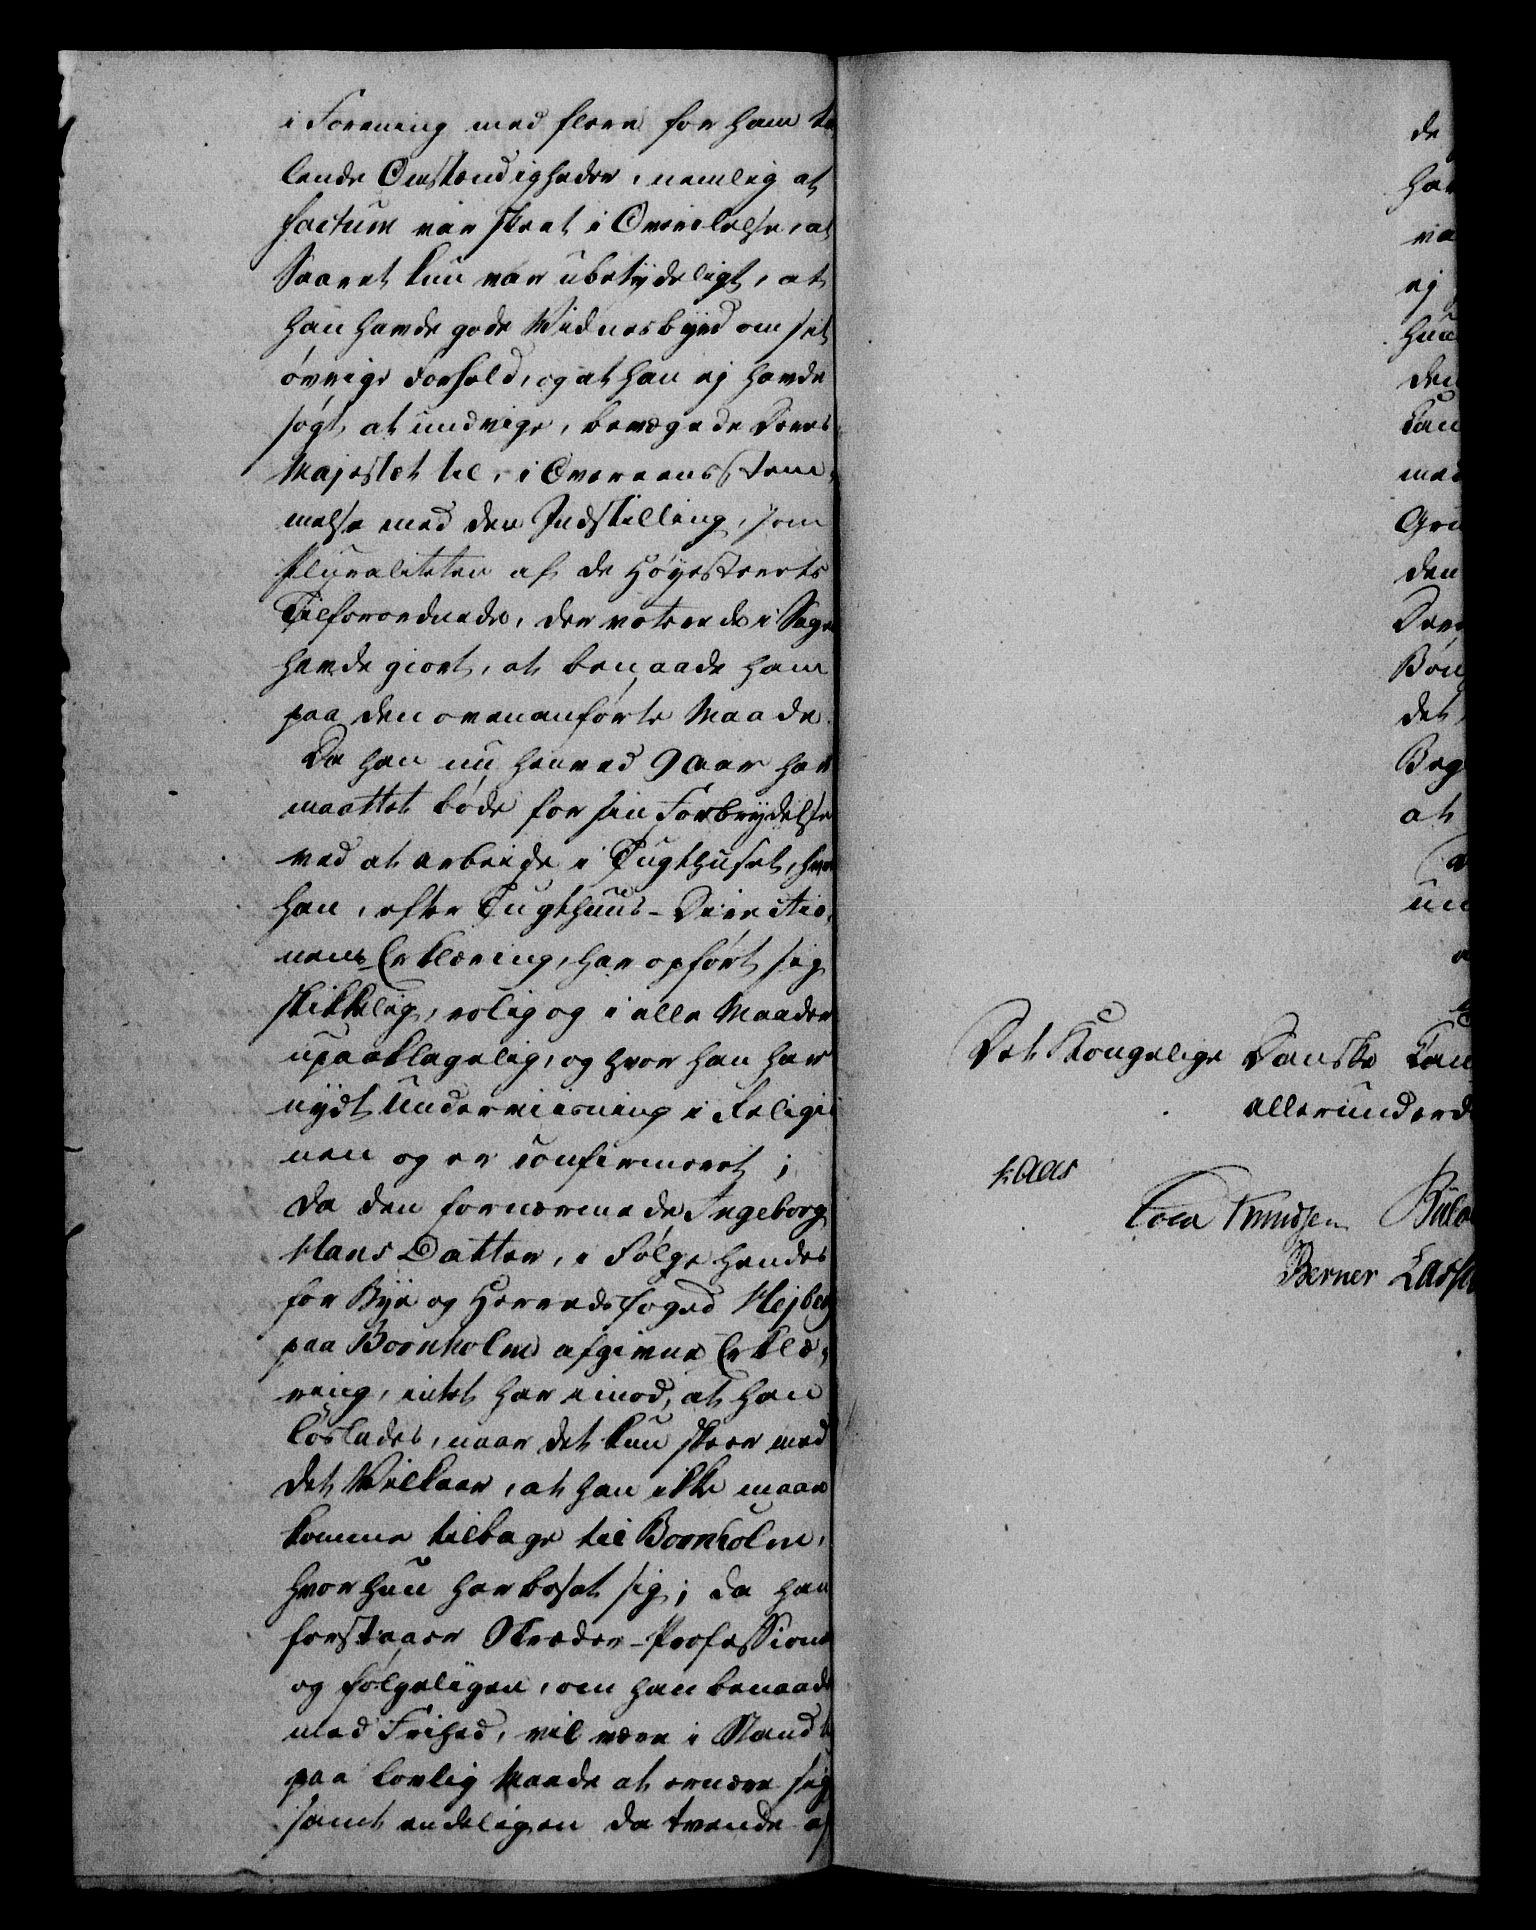 i Forening med flere for ham ta
lende Omstændigheder, nemlig at
factum var skeet i Overilelse, at
Saaret kun var ubetydeligt, at
han havde gode Vidnesbyrd om sit
øvrige Forhold, og at han ej havde
søgt at undvige, bevægede Deres
Majestæt til, i Overeensstem,
melse med den Indstilling, som
Pluraliteten af de Høyesterets
Tilforordnede, der voterede i Sage
havde giort, at benaade ham
paa den ovenanførte Maade.
Da han nu henved 9 Aar har
maattet bøde for sin Forbrydelse
ved at arbeide i Tugthuset, hvor
han, efter Tugthuus-Directio,
nens Erklæring, har opført sig
skikkelig, rolig og i alle Maader
upaaklagelig, og hvor han har
nydt Underviisning i Religio
nen og er confirmeret;
da den fornærmede Ingeborg
Hans Datter, i Følge hendes
for Bye og Herredsfoged Hejberg
paa Bornholm afgivne Erklæ,
ring, intet har imod, at han
løslades, naar det kun skeer med
det Vilkaar, at han ikke maae
komme tilbage til Bornholm,
hvor hun har bosat sig; da han
forstaaer Skræder-Professione
og følgeligen, om han benaade
med Frihed, vil være i Stand t
paa lovlig Maade at ernære sig
samt endeligen da tvende af
Det Kongelige Danske Can
allerunderd
Kaas
Cold Knudsen Bülo
Berner Lasse
de
har
va
ej
hun
den
kan
med
Gru
den
Dere
Bøn
det
Beg
at
un